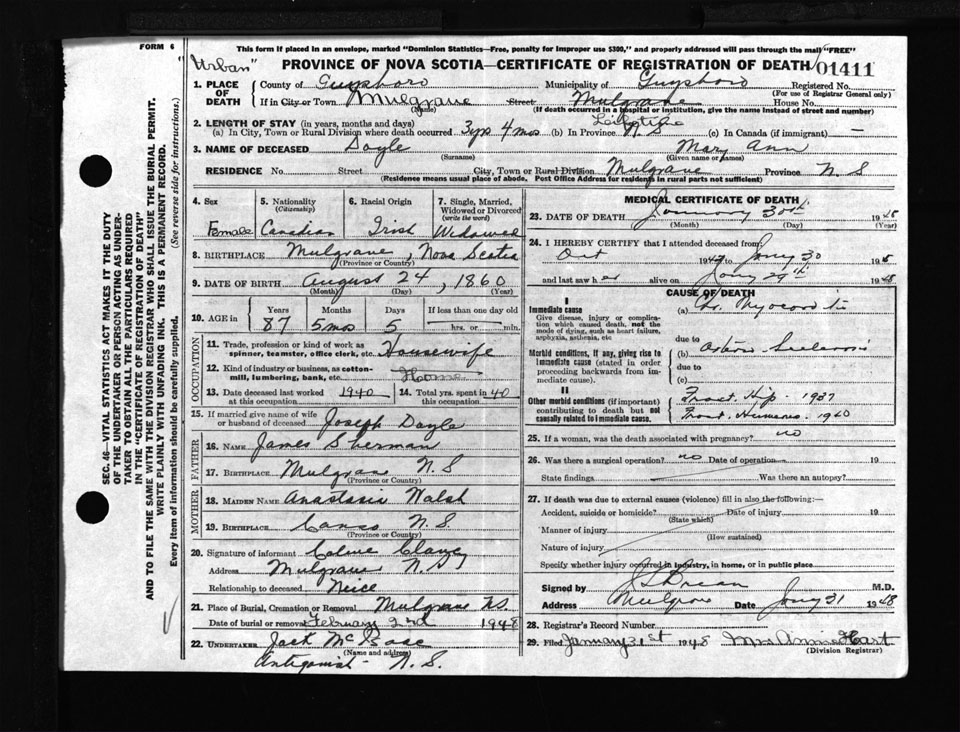 FORM 6
This form if placed in an envelope, marked "Dominion Statistics—Free, penalty for improper use $300," and properly addressed will pass through the mail "FREE"
"Urban"
PROVINCE OF NOVA SCOTIA—CERTIFICATE OF REGISTRATION OF DEATH
01411
1. PLACE OF DEATH
County of Guysboro Municipality of Guysboro Registered No.
(For use of Registrar General only)
If in City or Town Mulgrave Street Mulgrave House No.
(If death occurred in a hospital or institution, give the name instead of street and number)
2. LENGTH OF STAY (in years, months and days) Lifetime
(a) In City, Town or Rural Division where death occurred 3 yrs 4 mos (b) In Province N S (c) In Canada (if immigrant) —
3. NAME OF DECEASED Doyle Mary Ann
(Surname) (Given name or names)
RESIDENCE No. Street City, Town or Rural Division Mulgrave Province N S
(Residence means usual place of abode. Post Office Address for residents in rural parts not sufficient)
4. Sex
Female
5. Nationality (Citizenship)
Canadian
6. Racial Origin
Irish
7. Single, Married, Widowed or Divorced (write the word)
Widowed
8. BIRTHPLACE Mulgrave, Nova Scotia
(Province or Country)
9. DATE OF BIRTH August 24, 1860
(Month) (Day) (Year)
10. AGE in
Years Months Days If less than one day old
87 5 mos 5 hrs. or min.
OCCUPATION
11. Trade, profession or kind of work as spinner, teamster, office clerk, etc. Housewife
12. Kind of industry or business, as cotton-mill, lumbering, bank, etc. Home
13. Date deceased last worked at this occupation 1940
14. Total yrs. spent in this occupation 40
15. If married give name of wife or husband of deceased Joseph Doyle
FATHER
16. NAME James Sherman
17. BIRTHPLACE Mulgrave N. S
(Province or Country)
MOTHER
18. MAIDEN NAME Anastasia Walsh
19. BIRTHPLACE Canso N. S.
(Province or Country)
20. Signature of informant
Address Mulgrave N. S
Relationship to deceased Neice
21. Place of Burial, Cremation or Removal Mulgrave N.S.
Date of burial or removal February 2nd 1948
22. UNDERTAKER Jack McIsaac
(Name and address)
Antigonish - N. S.
MEDICAL CERTIFICATE OF DEATH
23. DATE OF DEATH January 30th 1948
(Month) (Day) (Year)
24. I HEREBY CERTIFY that I attended deceased from:
Oct 1947 to Jany 30 19
and last saw her alive on Jany 29th 1948
CAUSE OF DEATH
I
Immediate cause
Give disease, injury or complication which caused death, not the mode of dying, such as heart failure, asphyxia, asthenia, etc
(a) Chr. Myocarditis
due to
Morbid conditions, if any, giving rise to immediate cause (stated in order proceeding backwards from immediate cause).
(b)
due to
(c)
II
Other morbid conditions (if important) contributing to death but not causally related to immediate cause.
Fract. Hip. 1937
Fract. Humerus. 1940
25. If a woman, was the death associated with pregnancy? no
26. Was there a surgical operation? no Date of operation 19
State findings Was there an autopsy?
27. If death was due to external causes (violence) fill in also the following:—
Accident, suicide or homicide? Date of injury 19
(State which)
Manner of injury
(How sustained)
Nature of injury
Specify whether injury occurred in industry, in home, or in public place
Signed by M.D.
Address Mulgrave Date Jany 31 1948
28. Registrar's Record Number
29. Filed January 31st 1948 Mrs Annie Hart
(Division Registrar)
SEC. 46—VITAL STATISTICS ACT MAKES IT THE DUTY
OF THE UNDERTAKER OR PERSON ACTING AS UNDERTAKER
TO OBTAIN ALL THE PARTICULARS REQUIRED
IN THE "CERTIFICATE OF REGISTRATION OF DEATH"
AND TO FILE THE SAME WITH THE DIVISION REGISTRAR WHO SHALL ISSUE THE BURIAL PERMIT.
WRITE PLAINLY WITH UNFADING INK. THIS IS A PERMANENT RECORD.
Every item of information should be carefully supplied. (See reverse side for instructions.)